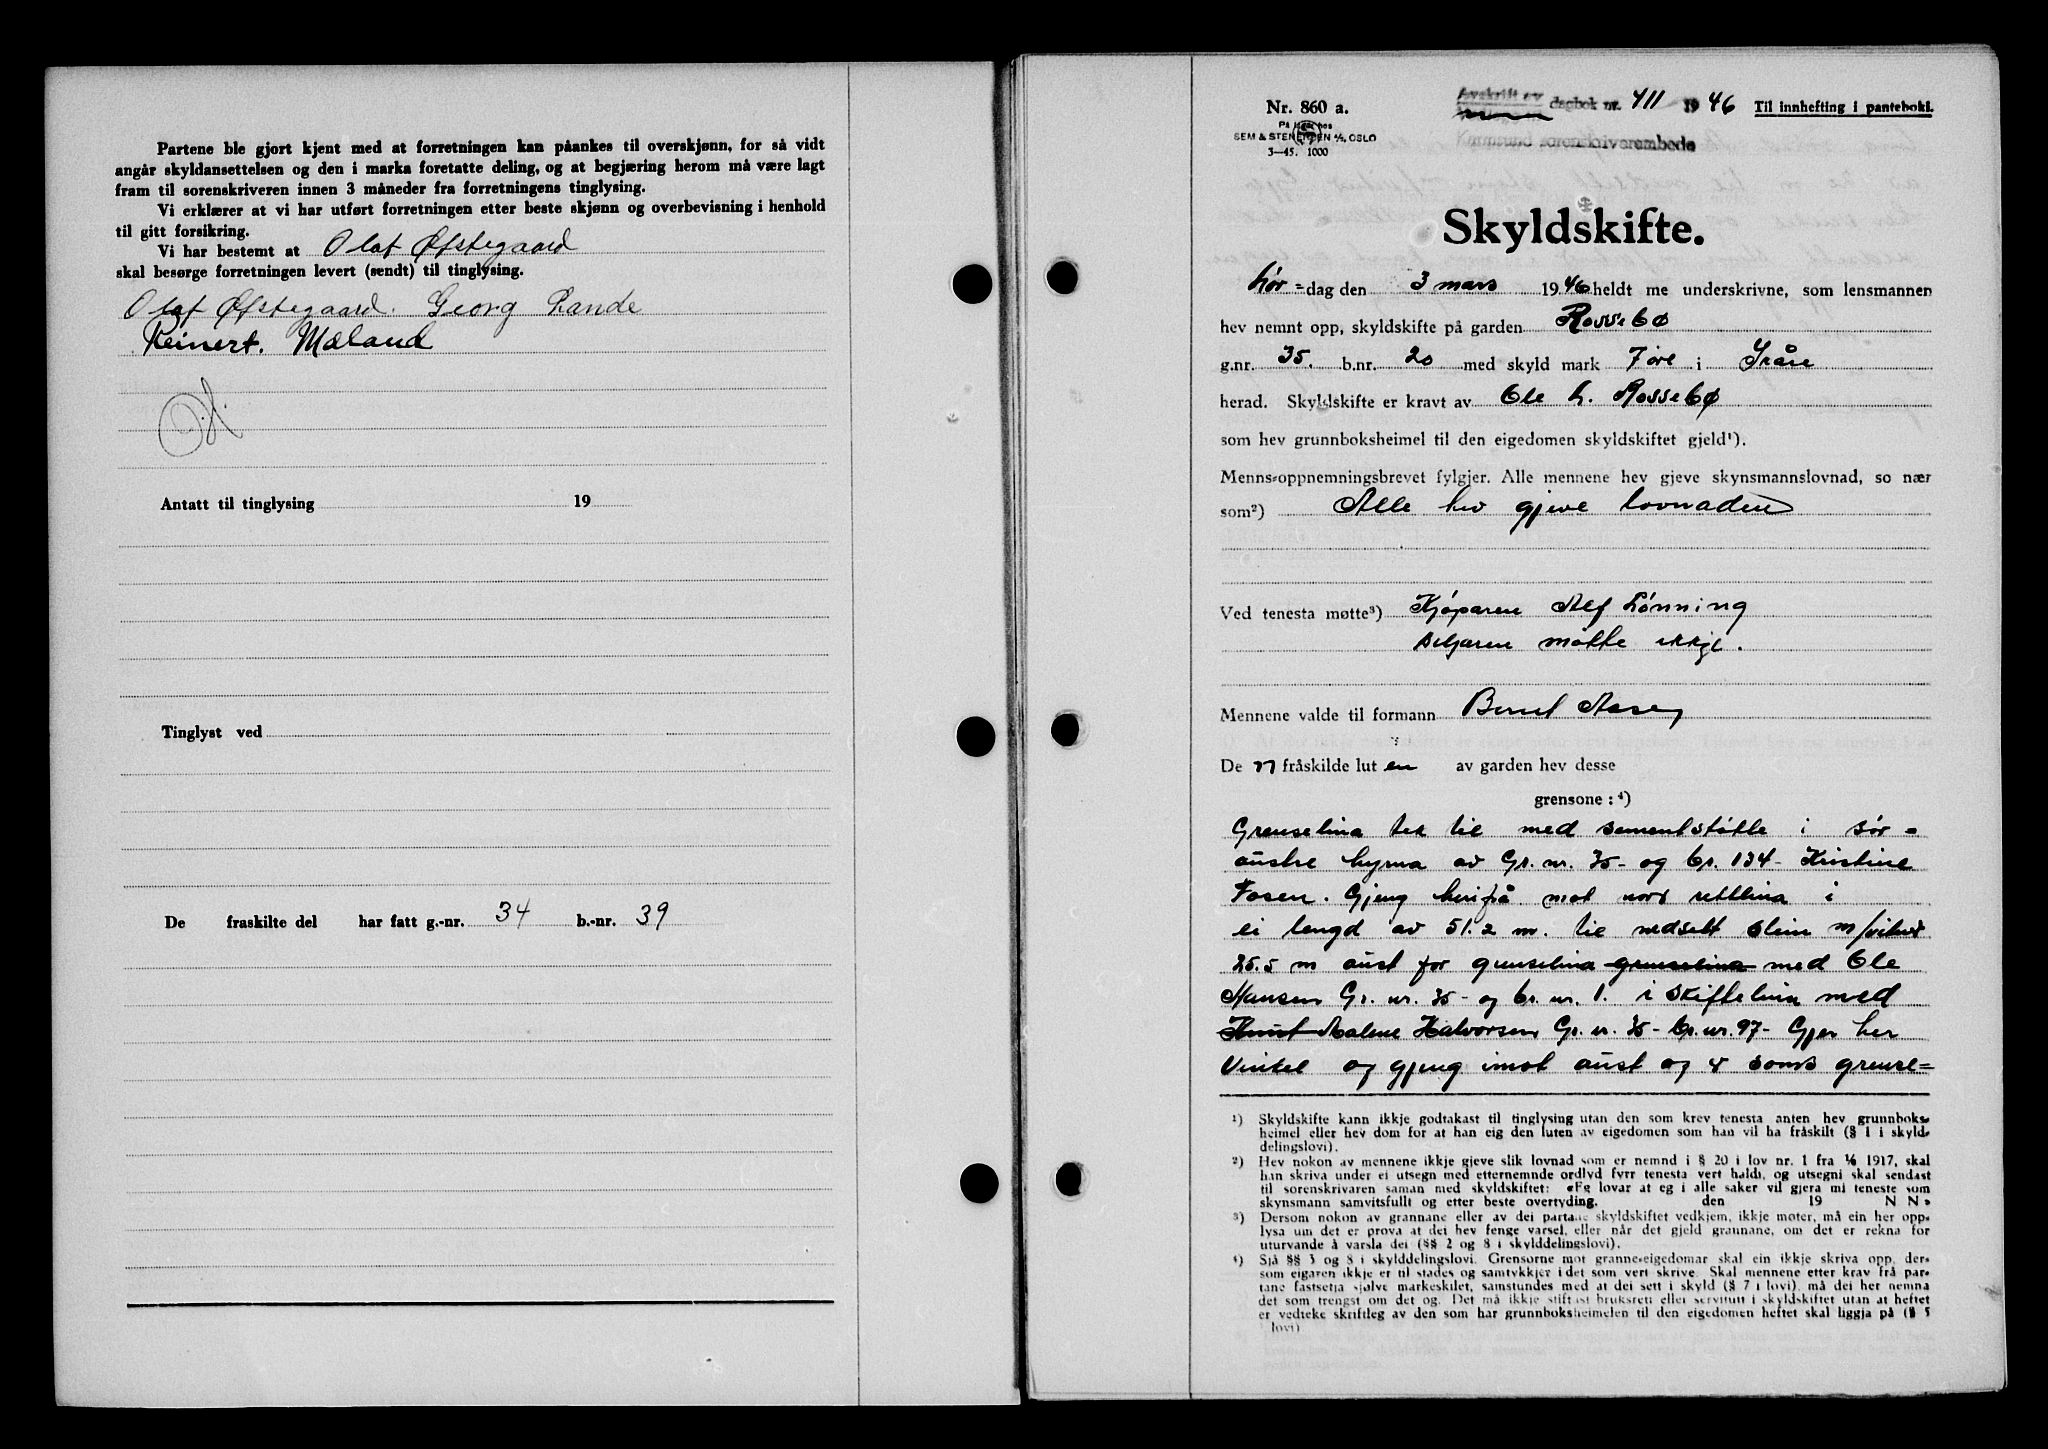 Partene ble gjort kjent med at forretningen kan påankes til overskjønn, for så vidt
angår skyldansettelsen og den i marka foretatte deling, og at begjæring herom må være lagt
fram til sorenskriveren innen 3 måneder fra forretningens tinglysing.
Vi erklærer at vi har utført forretningen etter beste skjønn og overbevisning i henhold
til gitt forsikring.
Vi har bestemt at Olaf Øfstegaard
skal besørge forretningen levert (sendt) til tinglysing.
Olaf Øfstegaard. Georg Lande
Reinert. Mæland
Antatt til tinglysing 19
Tinglyst ved
De fraskilte del har fått g.-nr. 34 b.-nr. 39
Nr. 860 a.
På lager hos
SEM & STENERSEN A/S, OSLO
3-45. 1000
Avskrift av dagbok nr. 411 1946 Til innhefting i panteboki.
Karmsund sorenskriverembede
Skyldskifte.
Lør=dag den 3 mars 1946 heldt me underskrivne, som lensmannen
hev nemnt opp, skyldskifte på garden Rossebø
g.nr. 35. b.nr. 20 med skyld mark 7 øre i Skåre
herad. Skyldskifte er kravt av Ole L. Rossebø
som hev grunnboksheimel til den eigedomen skyldskiftet gjeld¹).
Menns-oppnemningsbrevet fylgjer. Alle mennene hev gjeve skynsmannslovnad, so nær
som²) Alle hev gjeve lovnaden
Ved tenesta møtte³) Kjøparen Alf Lønning
Seljaren møtte ikkje.
Mennene valde til formann Berut Aase
De n fråskilde lut en av garden hev desse
grensone: ⁴)
Grenselina tek til med sementstøtte i sør-
austre hyrna av Gr. nr. 35- og br. 134- Kristine
Fosen. Gjeng herifrå mot nord rettlina i
ei lengd av 51.2 m. til nedsett stein m/vitner
25.5 m aust for grenselina grenselina med Ole
Hansen Gr. nr. 35- og br. nr. 1. i skiftelina med
Knut Malene Halvorsen Gr. n. 35- br. nr. 97- Gjer her
Vinkel og gjeng imot aust og v soms grense=
¹) Skyldskifte kann ikkje godtakast til tinglysing utan den som krev tenesta anten hev grunnboks-
heimel eller hev dom for at han eig den luten av eigedomen som han vil ha fråskilt (§ 1 i skyld-
delingslovi).
²) Hev nokon av mennene ikkje gjeve slik lovnad som er nemnd i § 20 i lov nr. 1 fra 1/6 1917, skal
han skriva under ei utsegn med etternemnde ordlyd fyrr tenesta vert haldi, og utsegni skal sendast
til sorenskrivaren saman med skyldskiftet: «Eg lovar at eg i alle saker vil gjera mi teneste som
skynsmann samvitsfullt og etter beste overtyding. den 19 N N»
³) Dersom nokon av grannane eller av dei partane skyldskiftet vedkjem, ikkje møter, må ein her opp-
lysa um det er prova at dei hev fenge varsel, eller når det gjeld grannane, om det er rekna for
uturvande å varsla dei (§§ 2 og 8 i skylddelingslovi).
⁴) Sjå §§ 3 og 8 i skylddelingslovi. Grensorne mot granne-eigedomar skal ein ikkje skriva opp, der-
som eigaren ikkje er til stades og samtykkjer i det som vert skrive. Skal mennene etter krav frå par-
tane fastsetja sjølve markeskilet, samstundes med at dei sett i skyld (§ 7 i lovi), må dei her nemna
det som trengst om det og. Det må ikkje stiftast bruksrett eller servitutt i skyldskiftet utan at heftet
er vedteke skriftleg av den som har grunnboksheimelen til den eigedomen heftet skal liggja på (§ 5
i lovi)